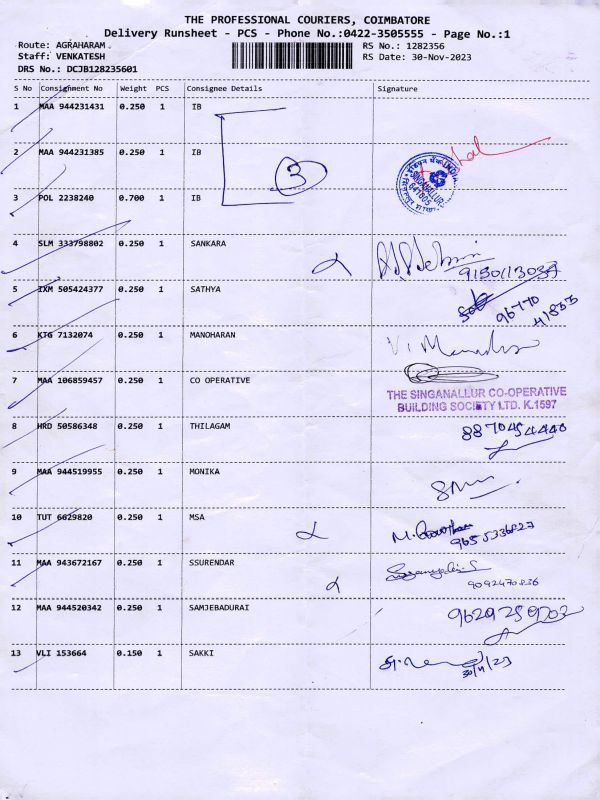 THE PROFESSIONAL COURIERS, COIMBATORE
Delivery Runsheet - PCS - Phone No.:0422-3505555 - Page No.:1
Route: AGRAHARAM RS No.: 1282356
Staff: VENKATESH RS Date: 30-Nov-2023
DRS No.: DCJB128235601
S No Consignment No Weight PCS Consignee Details Signature
1 MAA 944231431 0.250 1 IB
2 MAA 944231385 0.250 1 IB
3
3 POL 2238240 0.700 1 IB
SINGANALLUR
641005
4 SLM 333798802 0.250 1 SANKARA
5 IXM 505424377 0.250 1 SATHYA
96770
41833
6 KTG 7132074 0.250 1 MANOHARAN
7 MAA 106859457 0.250 1 CO OPERATIVE
THE SINGANALLUR CO-OPERATIVE
BUILDING SOCIETY LTD. K.1597
8 HRD 50586348 0.250 1 THILAGAM
8870454440
9 MAA 944519955 0.250 1 MONIKA
10 TUT 6629820 0.250 1 MSA
M. Gowtham
9655336827
11 MAA 943672167 0.250 1 SSURENDAR
9092470836
12 MAA 944520342 0.250 1 SAMJEBADURAI
13 VLI 153664 0.150 1 SAKKI
30/11/23